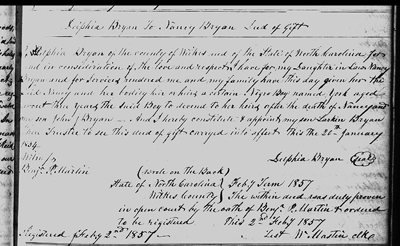 Delphia Bryan To Nancy Bryan Deed of Gift
I Delphia Bryan of the county of Wilkes and of the State of North Carolina for
and in consideration of the love and respect I have for my Daughter in Law Nancy
Bryan and for Services rendered me and my family have this day given her the
said Nancy and her bodily heirs a certain Negro Boy named York aged
about three years the said Boy to descend to her heirs after the death of Nancy and
my son John Bryan – And I hereby constitute & appoint my son Larkin Bryan
Trustee to see this deed of gift carried into effect this the 26th January
1854.
Witness Delphia Bryan (Seal)
Benj. P. Martin
(wrote on the Back)
State of North Carolina } Feby Term 1857
Wilkes County } The within deed was duly proven
in open court by the oath of Benj. P. Martin & ordered
to be registered This 2nd Feby 1857
Registered Feby 2nd 1857 – Test Wm Mastin clk